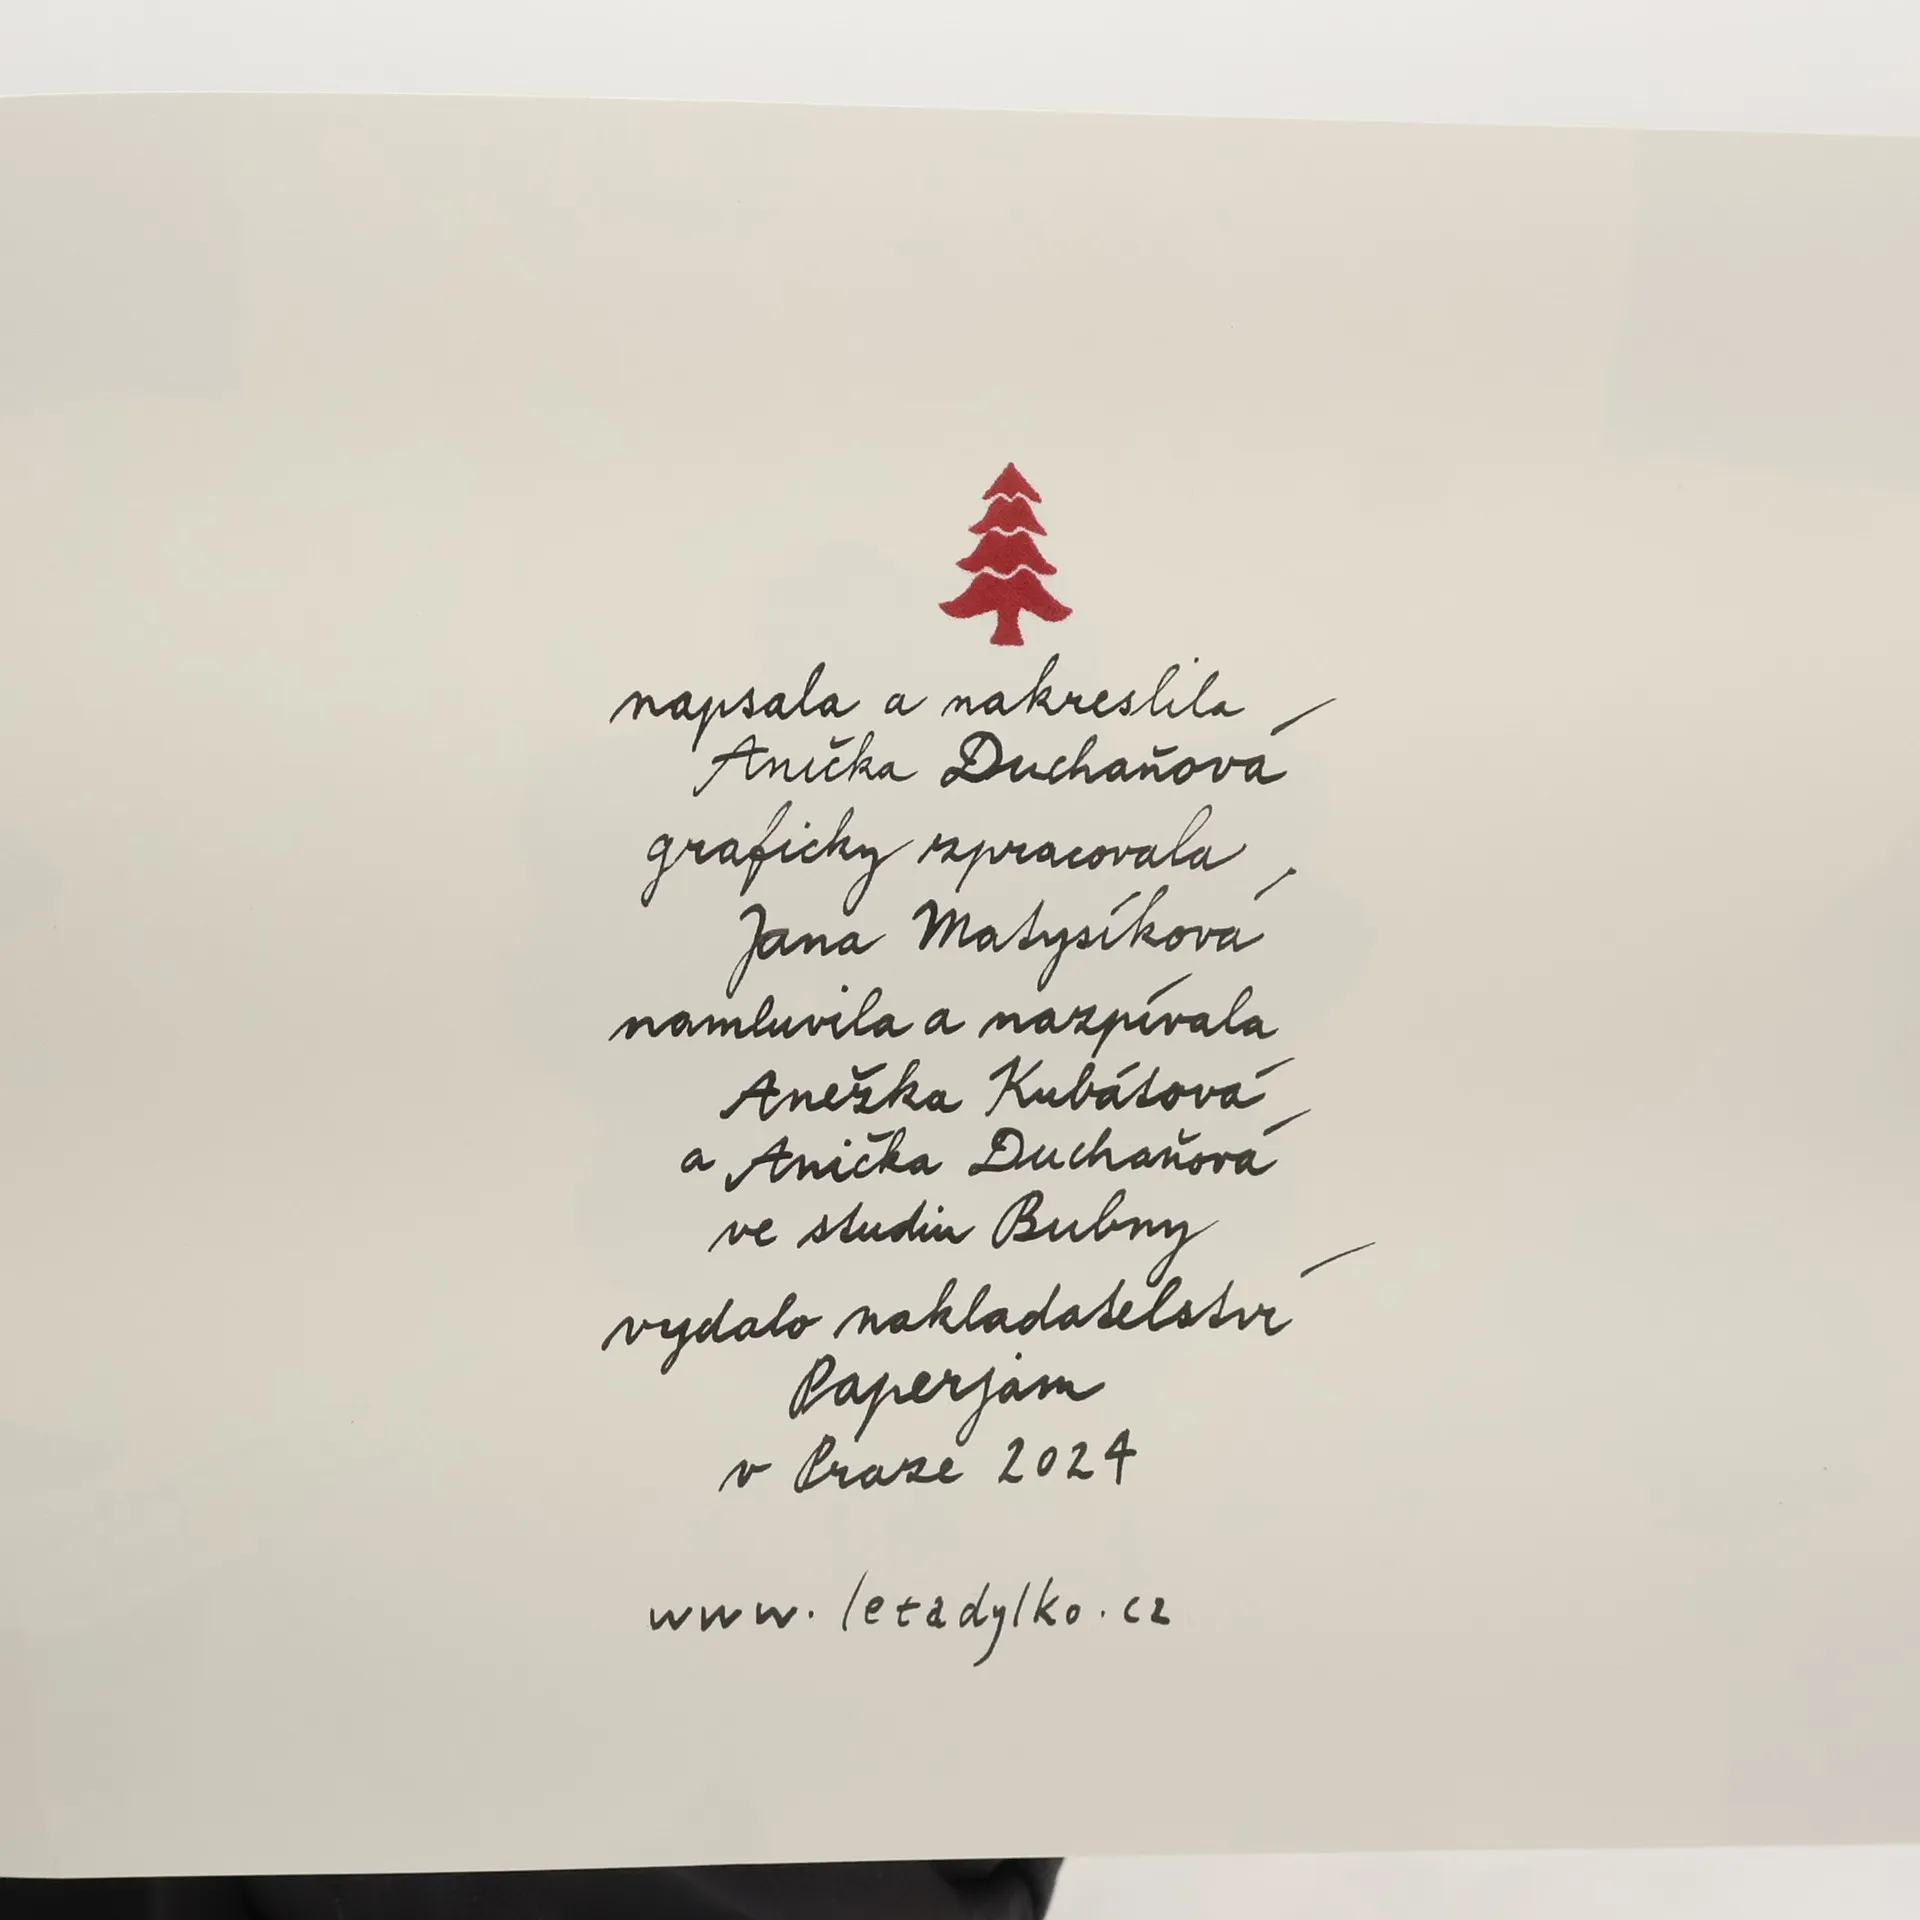 napsala a nakreslila
Anička Duchaňová
graficky zpracovala
Jana Matysíková
namluvila a nazpívala
Anežka Kubátová
a Anička Duchaňová
ve studiu Bubny
vydalo nakladatelství
Paperjam
v Praze 2024
www.letadylko.cz